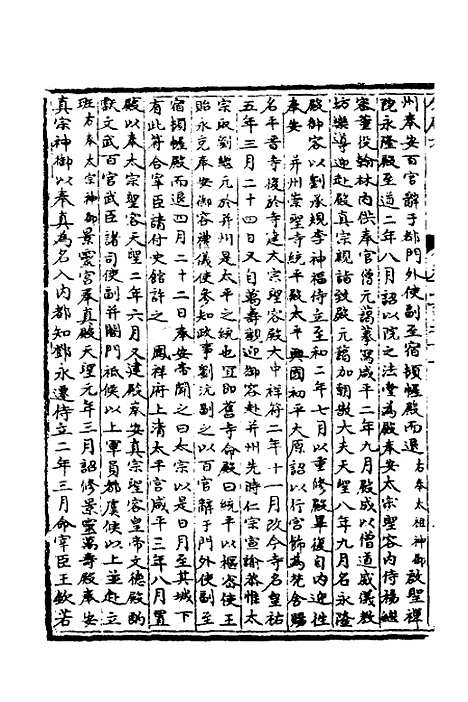 州奉安百官辭于都門外使副至宿頓帳殿而退右奉太祖神御啟聖禪
院永隆殿至道二年八月詔以院之法堂為殿奉安太宗聖容內侍楊繼
密董役翰林內供奉官僧元藹摹寫咸平二年九月殿成以僧道威儀教
坊樂導迎赴殿真宗親詣致殿元藹加朝散大夫天聖八年九月名永隆
殿御容以劉承規李神福侍立至和二年七月以重修殿畢復自內迎往
奉安　　并州崇聖寺統平殿太平興國初平太原詔以行宮飾為梵舍賜
名平晉寺後於寺建太宗聖容殿大中祥符二年十一月改今寺名皇祐
五年三月二十四日又自萬壽觀迎御容赴并州先時仁宗宣諭卷惟太
宗取劉繼元於并州是太平之統也宜即舊寺命殿曰統平以樞密使王
貽永充奉安御容禮儀使參知政事劉沆副之以百官辭于門外使副至
宿頓帳殿而退四月二十二日奉安帝聞之曰太宗以是日月至其城下
有此符合宰臣請付史館許之　　鳳祥府上清太平宮咸平三年八月置
殿以奉太宗聖容天聖二年六月又建殿奉安真宗聖容皇帝文德殿酌
獻文武百官武臣諸司使副并閤門祗候以上軍員都虞候以上並赴立
班右奉太宗神御景靈宮奉真殿天聖元年三月詔修景靈萬壽殿奉安
真宗神御以奉真為名入內都知鄧永遷侍立二年三月命宰臣王欽若